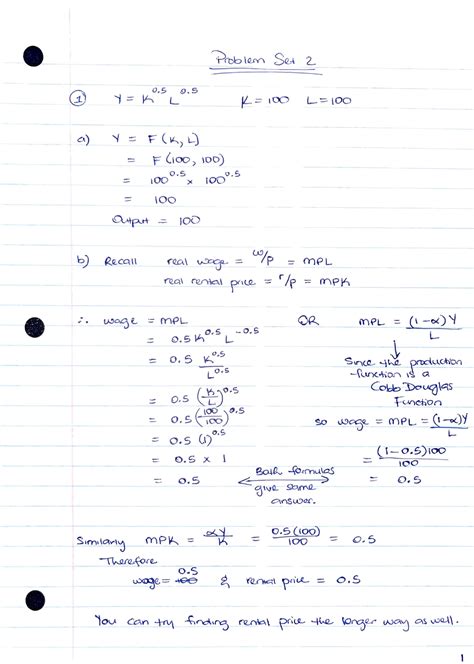 Problem Set 2
① Y = K^0.5 L^0.5 K = 100 L = 100
a) Y = F(K, L)
= F(100, 100)
= 100^0.5 × 100^0.5
= 100
Output = 100
b) Recall real wage = w/p = MPL
real rental price = r/p = MPK
∴ wage = MPL
= 0.5 K^0.5 L^-0.5
= 0.5 K^0.5/L^0.5
= 0.5 (K/L)^0.5
= 0.5 (100/100)^0.5
= 0.5 (1)^0.5
= 0.5 × 1
= 0.5
OR MPL = (1-α)Y/L
Since the production
function is a
Cobb Douglas
Function
so wage = MPL = (1-α)Y/L
= (1-0.5)100/100
= 0.5
Both formulas
give same
answer.
Similarly MPK = αY/K = 0.5(100)/100 = 0.5
Therefore
wage = 0.5 & rental price = 0.5
You can try finding rental price the longer way as well.
1